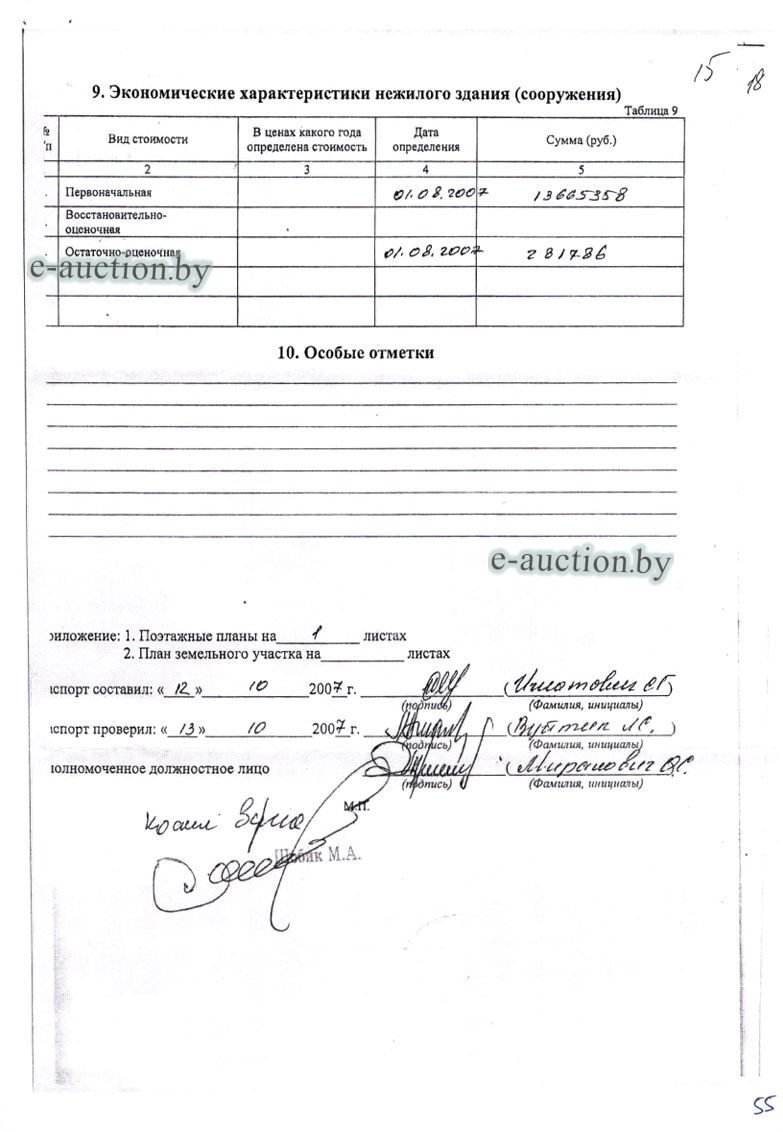 15
18
9. Экономические характеристики нежилого здания (сооружения)
Таблица 9
№ Вид стоимости В ценах какого года Дата Сумма (руб.)
'п определена стоимость определения
2 3 4 5
Первоначальная 01.08.2007 13665358
Восстановительно-
оценочная
Остаточно-оценочная 01.08.2007 281786
e-auction.by
10. Особые отметки
e-auction.by
риложение: 1. Поэтажные планы на 1 листах
2. План земельного участка на листах
спорт составил: « 12 » 10 2007 г. (Игнатович С.Г.)
(подпись) (Фамилия, инициалы)
спорт проверил: « 13 » 10 2007 г.
(подпись) (Фамилия, инициалы)
олномоченное должностное лицо (Миранович О.С.
(подпись) (Фамилия, инициалы)
М.П.
Копия Верна
М.А.
55